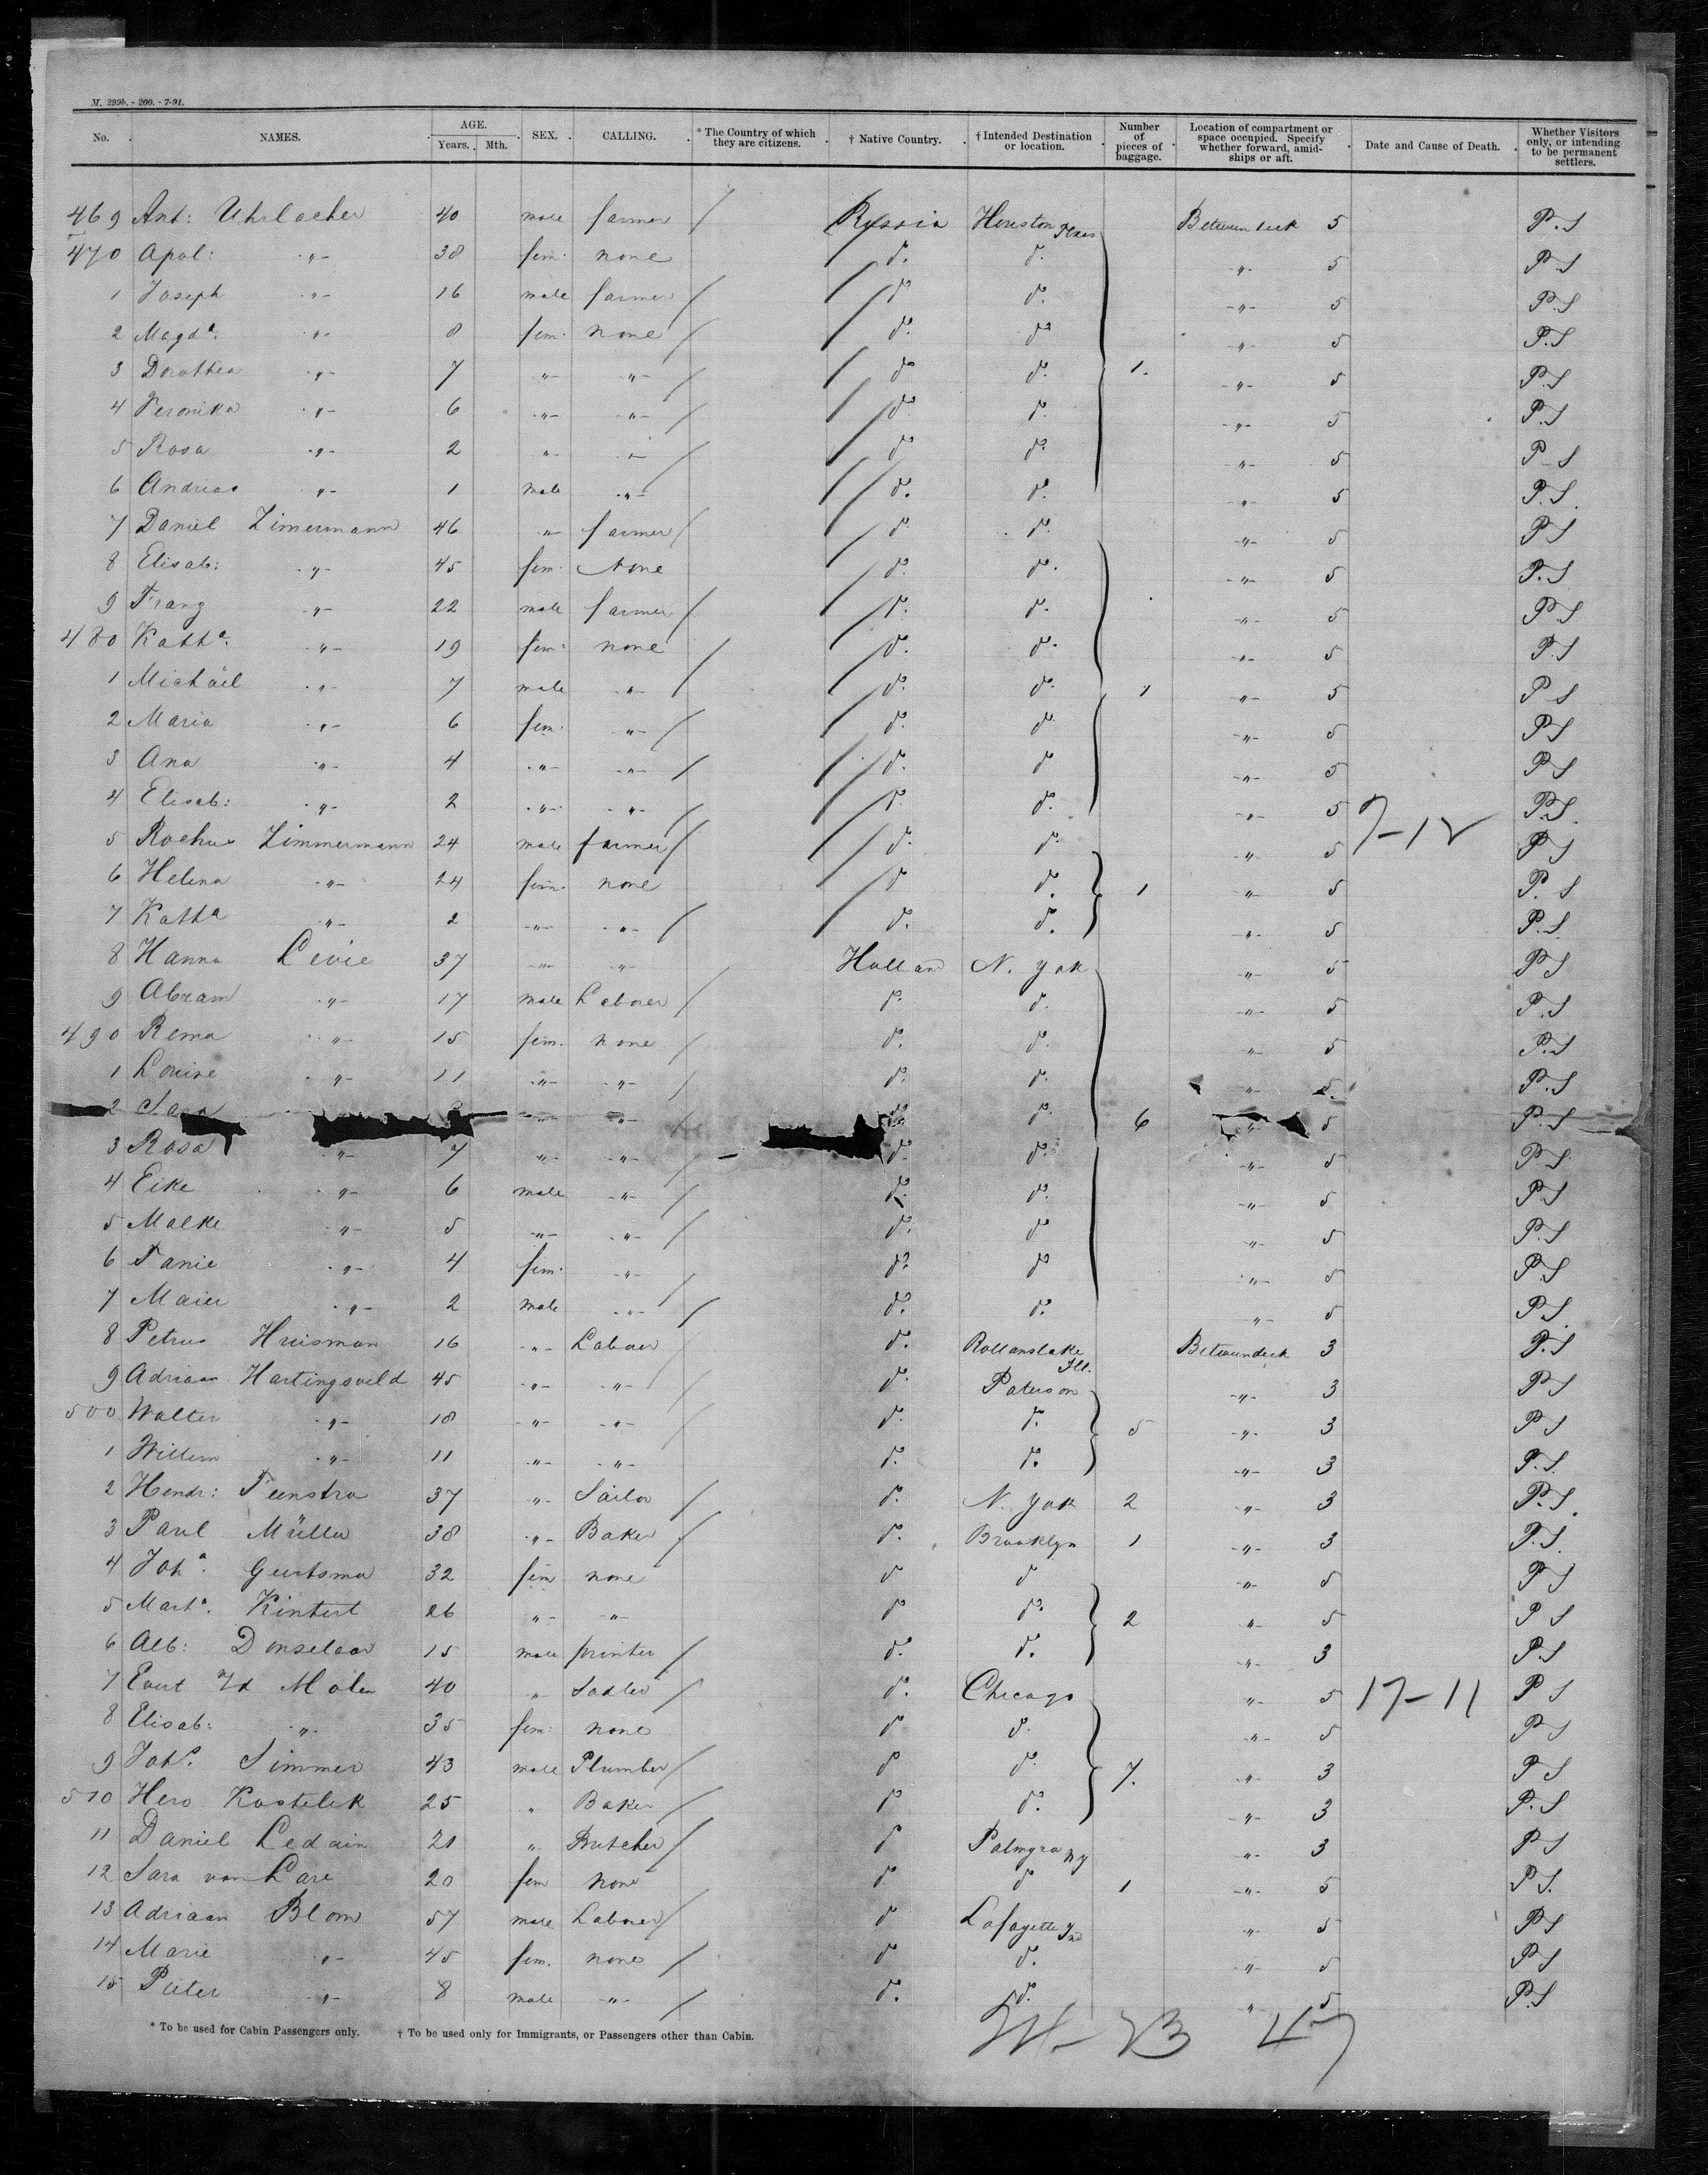 M. 299b. - 200. - 7-91.
No. NAMES. AGE. Years. Mth. SEX. CALLING. * The Country of which they are citizens. † Native Country. † Intended Destination or location. Number of pieces of baggage. Location of compartment or space occupied. Specify whether forward, amidships or aft. Date and Cause of Death. Whether Visitors only, or intending to be permanent settlers.
469 Ant: Uhrlacher 40 male farmer / Russia Houston Texas Betweendeck 5 P.S
470 Apol: -"- 38 fem: none do. do. -"- 5 P.S
1 Joseph -"- 16 male farmer / do do. -"- 5 P.S
2 Magda. -"- 8 fem. none / do. do -"- 5 P.S
3 Dorothea -"- 7 -"- -"- / do do. 1. -"- 5 P.S
4 Veronika -"- 6 -"- -"- / do. do. -"- 5 P.S
5 Rosa -"- 2 -"- -"- / do do. -"- 5 P-S
6 Andreas -"- 1 male -"- do. do. -"- 5 P.S.
7 Daniel Zimermann 46 -"- farmer / do. do. -"- 5 P S
8 Elisab: -"- 45 fem. None do. do. -"- 5 P.S
9 Franz -"- 22 male farmer / do. do. -"- 5 P.S
480 Katha. -"- 19 fem. none / do. do. -"- 5 P.S
1 Michäel -"- 7 male -"- / do. do. 1 -"- 5 P S
2 Maria -"- 6 fem. -"- / do. do. -"- 5 P S
3 Ana -"- 4 -"- -"- / do. do -"- 5 P S
4 Elisab: -"- 2 -"- -"- / do. do. -"- 5 P.S.
7-12
5 Rochus Zimmermann 24 male farmer / do. do. -"- 5 P S
6 Helena -"- 24 fem. none do do. 1 -"- 5 P. S
7 Katha -"- 2 -"- -"- / do. do. -"- 5 P.S.
8 Hanna Levie 37 -"- -"- Holland N. York -"- 5 P S
9 Abram -"- 17 male Laborer / do. do. -"- 5 P.S
490 Rema -"- 15 fem. none / do. do. -"- 5 P.S
1 Louise -"- 11 -"- -"- / do. do. -"- 5. P.S
2 Sara -"- -"- / do do. 6 -"- 5 P.S
3 Rosa -"- 7 -"- -"- / do. do. -"- 5 P S
4 Eike -"- 6 male -"- / do. do. -"- 5 P.S
5 Malke -"- 5 -"- -"- / do. do -"- 5 P.S
6 Fanie -"- 4 fem. -"- / do. do -"- 5 P.S
7 Maier -"- 2 male -"- / do. do. -"- 5 P.S.
8 Petrus Huisman 16 -"- Laborer do. Ill. Betweendeck 3 P.S
9 Adriaan Hartingsveld 45 -"- -"- / do. Paterson -"- 3 P S
500 Walter -"- 18 -"- -"- / do. do. 5 -"- 3 P S
1 Willem -"- 11 -"- -"- do. do. -"- 3 P.S.
2 Hendr: Feenstra 37 -"- Sailor / do. N. York 2 -"- 3 P.S.
3 Paul Müller 38 -"- Baker / do. Brooklyn 1 -"- 3 P.S.
4 Joha. Geertsma 32 fem none do do -"- 5 P S
5 Marta. Kintert 26 -"- -"- do do. 2 -"- 5 P S
6 Alb: Donselaar 15 male printer / do. do. -"- 3 P.S
7 Evert v/d Molen 40 " Sadler / do. Chicago -"- 5 P S
17-11
8 Elisab: -"- 35 fem: none do do. -"- 5 P S
9 Johs. Simmer 43 male Plumber / do do. 7. -"- 3 P S
510 Hero Kostelek 25 " Baker / do do. -"- 3 P.S
11 Daniel Ledain 21 " Butcher / do Palmyra NY -"- 3 P S
12 Sara van Lare 20 fem none do do 1 -"- 5 P S.
13 Adriaan Blom 57 male Laborer / do Lafayette Ind -"- 5 P S
14 Marie -"- 45 fem. none / do do. -"- 5 P S
15 Pieter -"- 8 male -"- / do. do. " 5 P.S
* To be used for Cabin Passengers only. † To be used only for Immigrants, or Passengers other than Cabin.
24- 23 47